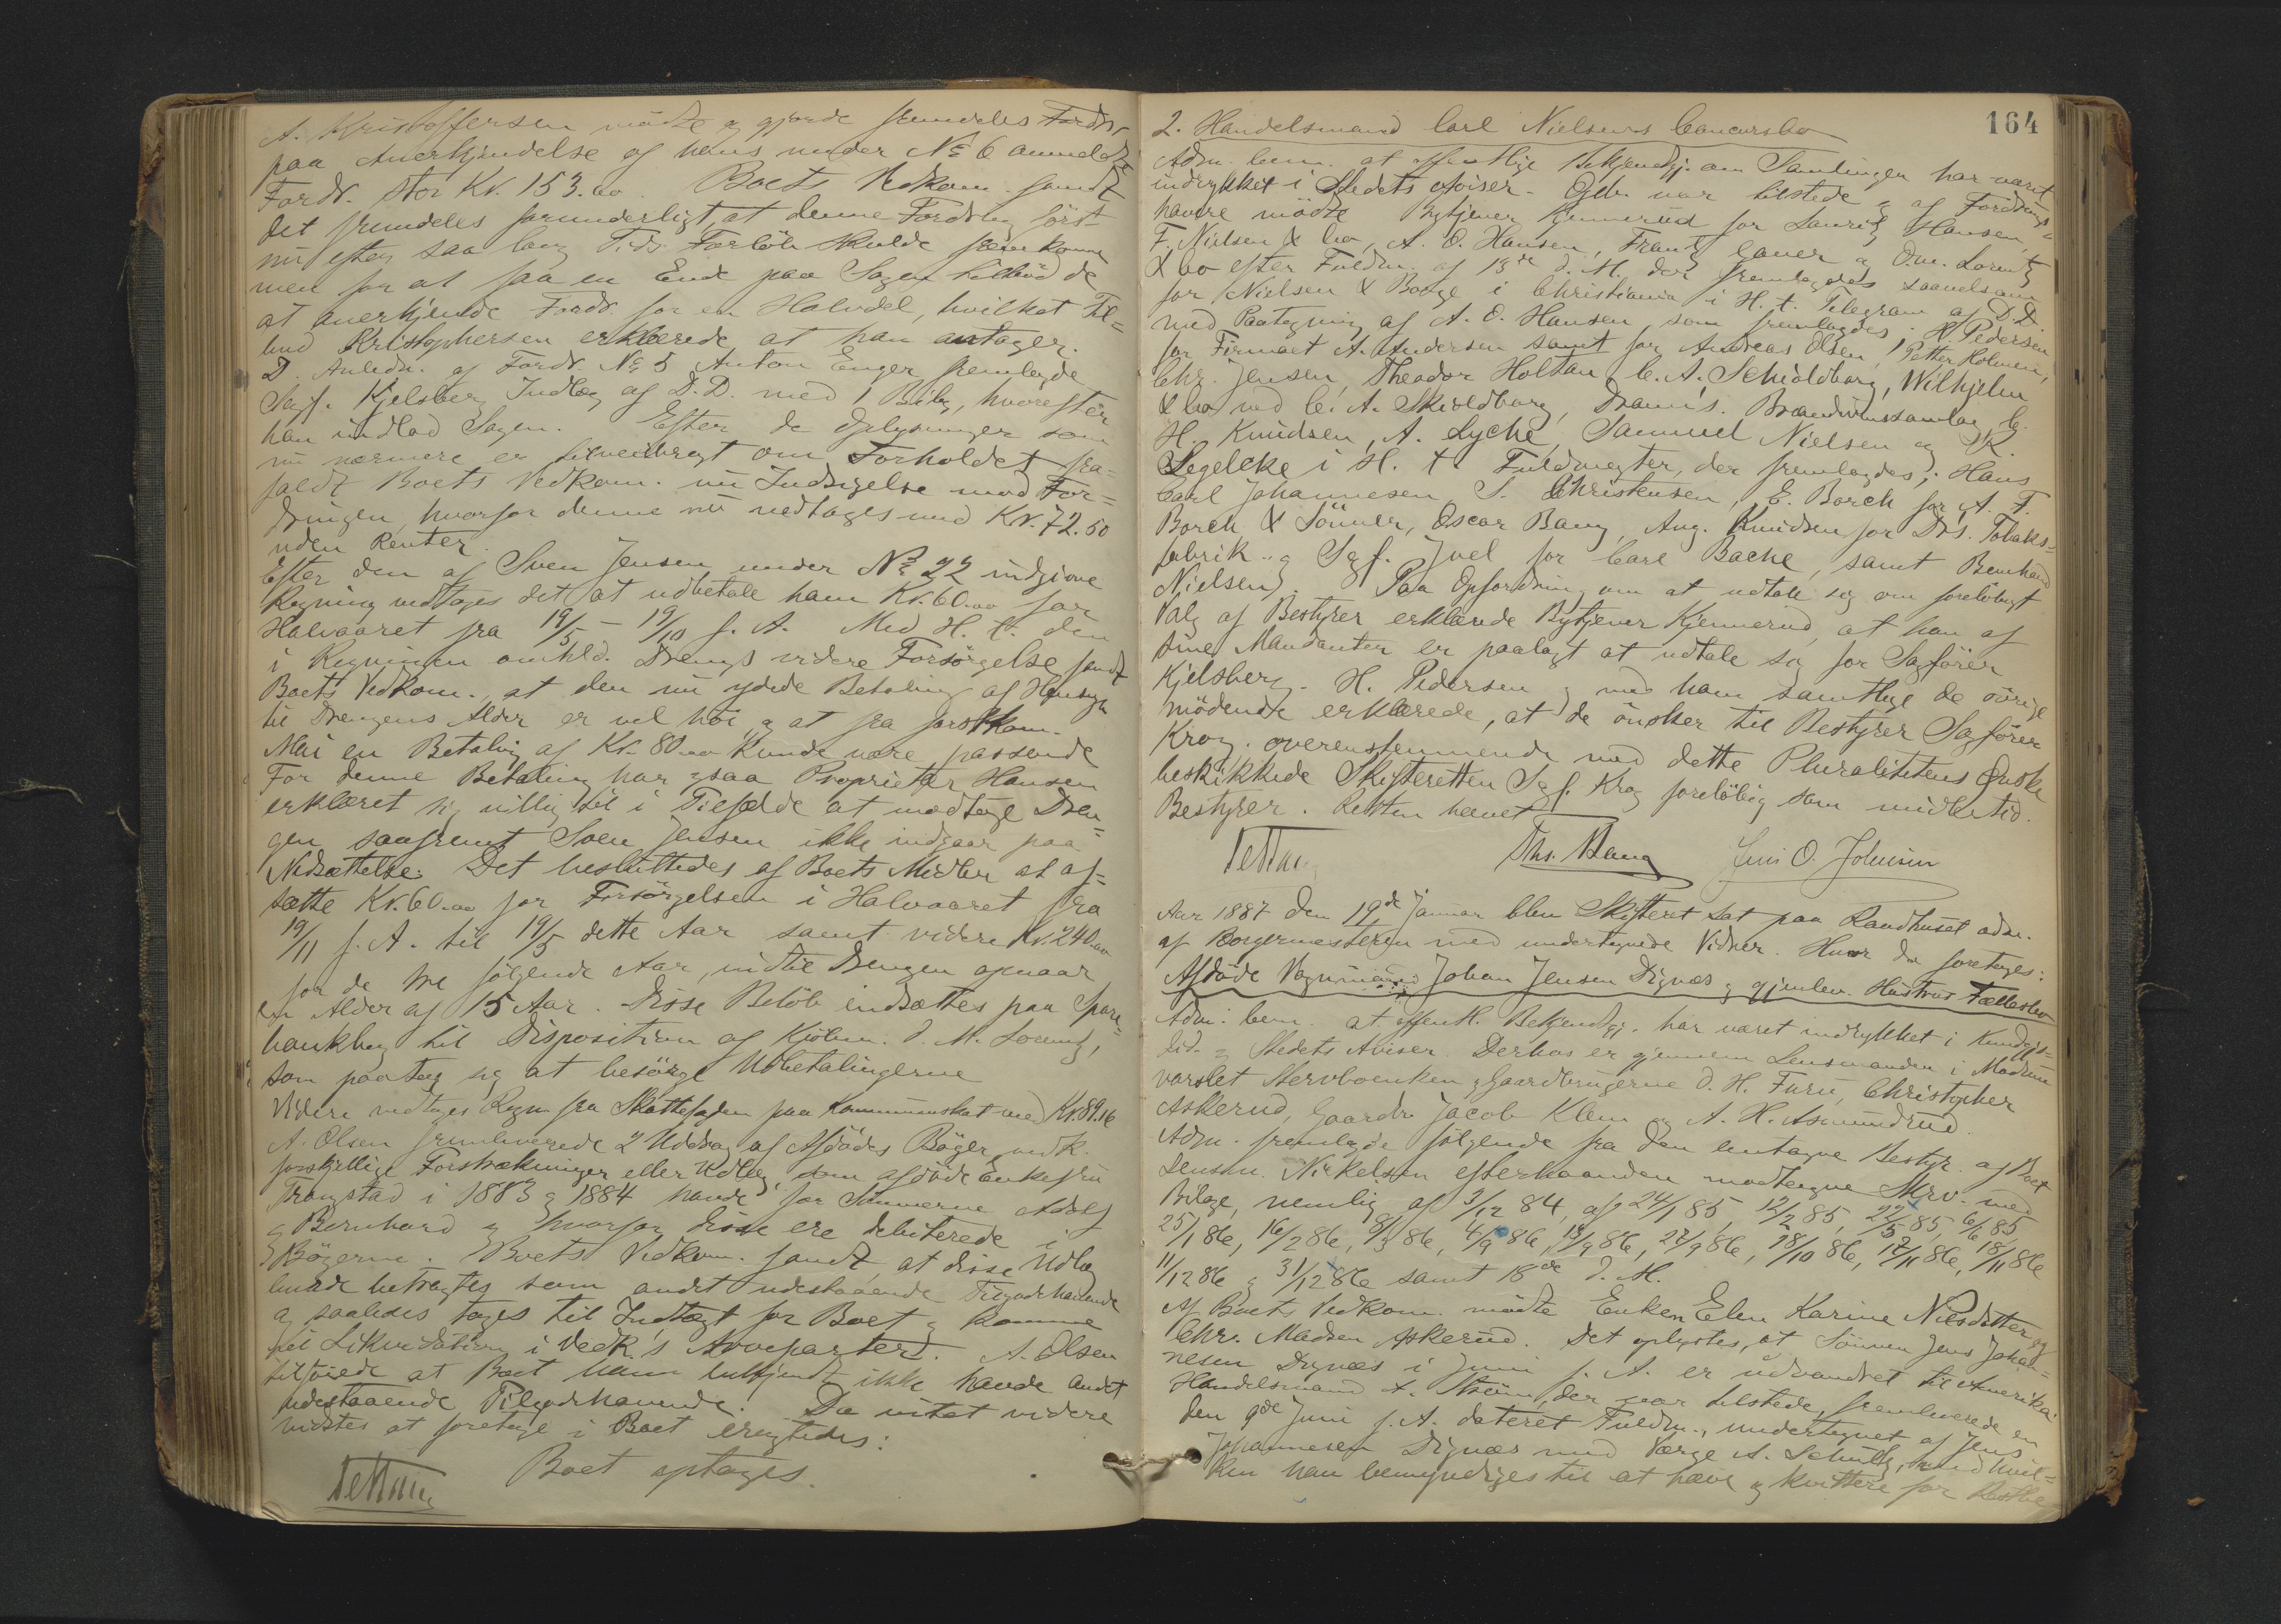 A. Kristoffersen mødte og gjorde fremdeles Fordr.
paa Anerkjendelse af hans under No 6 anmeldte
Fordr. stor Kr. 153.00. Boets Vedkom. fandt
det fremdeles forunderligt, at denne Fordring först
nu efter saa lang Tids Forlöb skulde fremkomme
men for at faa en Ende paa Sagen tilböd de
at anerkjende Fordr. for en Halvdel, hvilket Fil=
bud Kristophersen erklærede at han antager.
I Anledn. af Fordr. No 5 Anton Enger fremlagde
Sagf. Kjelsberg Indlæg af D.D. med 1 Bilag, hvorefter
han indlod Sagen. Efter de Oplysninger som
nu nærmere er tilveiebragt om Forholdet fra=
faldt Boets Vedkom. nu Indsigelse mod For=
dringen, hvorfor denne nu vedtages med Kr. 72.50
uden Renter.
Efter den af Sven Jensen under No 22 indgivne
Regning vedtages det at udbetale ham Kr. 60.00 for
Halvaaret fra 19/5 - 19/10 f. A. Med H. t. den
i Regningen omhld. Drengs videre Forsörgelse fandt
Boets Vedkom., at den nu ydede Betaling af Hensyn
til Drengens Alder er vel höi, og at fra förstkom.
Mai en Betaling af Kr. 80.00 kunde være passende
For denne Betaling har ogsaa Proprietær Hansen
erklæret sig villig til i Tilfælde at modtage Dren=
gen saafremt Sven Jensen ikke indgaar paa
Nedsættelse. Det besluttedes af Boets Midler at af=
sætte Kr. 60.00 for Forsörgelsen i Halvaaret fra
19/11 f. A. til 19/5 dette Aar samt videre Kr. 240.00
for de tre fölgende Aar, indtil Drengen opnaar
en Alder af 15 Aar. Disse Belöb indsættes paa Spare=
bankbog til Disposition af Kjöbm. O. M. Lorentz,
som paatog sig at besörge Udbetalingerne
Videre vedtages Regn. fra Skattefogden paa Kommuneskat med Kr. 89.16
A. Olsen fremleverede 2 Uddrag af Afdödes Böger vedk.
forskjellige Forstrækninger eller Udlæg, som afdöde Enkefru
Trangstad i 1883 og 1884 havde for Sönnerne Adolf
og Bernhard og hvorfor disse ere debiterede i
Bögerne. Boets Vedkom. fandt, at disse Udlæg
burde betragtes som andet udestaaende Tilgodehavende
og saaledes tages til Indtægt for Boet og komme
til Likvidation i Vedk.'s Arveparter. A. Olsen
tilföiede at Boet ham bekjendt ikke havde andet
udestaaende Tilgodehavende. Da intet videre
vidstes at foretage i Boet eragtedes:
Boet optages.
164
2. Handelsmand Carl Nielsens Concursbo
Adm. bem. at offentlige Bekjendtgj. om Samlingen har været
indrykket i Stedets Aviser. Cdtr. var tilstede og af Fordrings=
havere mödte Bytjener Kjennerud for Lauritz Hansen,
F. Nielsen & Co, A. O. Hansen, Frantz Cauer og O. M. Lorentz
& Co efter Fuldm. af 13de d. M. der fremlagdes saavelsom
for Nielsen & Borge i Christiania i H. t. Telegram af D.D.
med Paategning af A. O. Hansen, som fremlagdes. H. Pedersen
for Firmaet A. Andersen samt for Andreas Olsen, Petter Holmen,
Chr. Jensen, Theodor Holtan, C. A. Schioldborg, Wilhjelm
& Co ved C. A. Skioldborg, Dram's. Brændevinssamlag, C.
H. Knudsen, A. Lyche, Samuel Nielsen og R.
Segelcke i H. t. Fuldmagter, der fremlagdes; Hans
Carl Johannesen, S. Christensen, E. Borch for A. F.
Borch & Sönner, Oscar Bang, Aug. Knudsen for Drs. Tobaks=
fabrik og Sagf. Juel for Carl Bache, samt Bernhard
Nielsen. Paa Opfordring om at udtale sig om foreløbigt
Valg af Bestyrer erklærede Bytjener Kjennerud, at han af
sine Mandanter er paalagt at udtale sig for Sagförer
Kjelsberg. H. Pedersen og med ham samtlige de övrige
mödende erklærede, at de önsker til Bestyrer Sagförer
Krog. overensstemmende med dette Pluralitetens Önske
beskikkede Skifteretten Sagf. Krog foreløbig som midlertid.
Bestyrer. Retten hævet
Ths. Bang Jens O. Johnsen
Aar 1887 den 19de Januar blev Skifteret sat paa Raadhuset adm.
af Borgermesteren med undertegnede Vidner. Hvor da foretoges:
Afdöde Vognmand Johan Jensen Dignæs og gjenlev. Hustrus Fællesbo
Adm. bem. at offentl. Bekjendtgj. har været indrykket i Kundgjs=
tid. og Stedets Aviser. Derhos er gjennem Lensmanden i Modum
varslet Stervboenken, Gaardbrugerne O. H. Furu, Christopher
Askerud, Gaardbr. Jacob Klem og A. H. Asmundrud.
Adm. fremlagde fölgende fra den antagne Bestyr. af Boet
Lensm. Nickelsen efterhaanden modtagne Skriv. med
Bilage, nemlig af 3/12 84, af 24/1 85, 12/2 85, 22/5 85, 6/6 85
25/1 86, 16/2 86, 9/3 86, 4/9 86, 13/9 86, 27/9 86, 28/10 86, 12/11 86, 18/11 86
11/12 86 og 31/12 86 samt 18de d. M.
Af Boets Vedkom. mödte Enken Elen Karine Nilsdatter og
Chr. Madsen Askerud. Det oplystes, at Sönnen Jens Johan=
nesen Dignæs i Juni f. A. er udvandret til Amerika.
Handelsmand A. Ström, der var tilstede, fremleverede en
den 9de Juni f. A. dateret Fuldm., undertegnet af Jens
Johannesen Dignæs med Værge A. Schultz, ved hvil=
ken han bemyndiges til at hæve og kvittere for